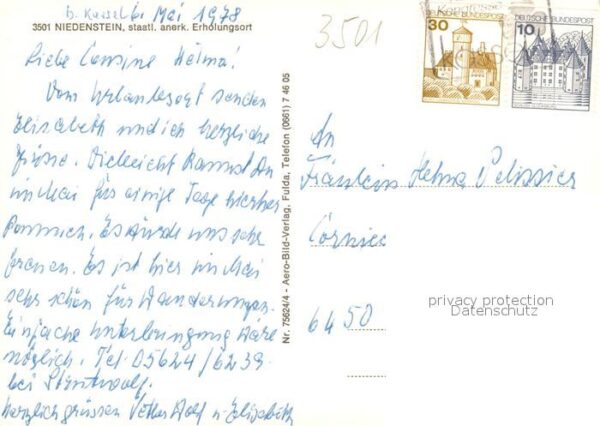 b. Kassel 6. Mai 1978
3501 NIEDENSTEIN, staatl. anerk. Erholungsort
3501
Liebe Cousine Helma!
Vom Urlaubsort senden
Elisabeth und ich herzliche
Grüsse. Vielleicht kannst Du
im Mai für einige Tage hierher
kommen. Es würde uns sehr
freuen. Es ist hier im Mai
sehr schön für Wanderungen.
Einfache Unterbringung wäre
möglich. Tel. 05624/6239
bei
Herzlich grüssen Vetter u. Elisabeth
Nr. 75624/4 - Aero-Bild-Verlag, Fulda, Telefon (0661) 7 46 05
30
DEUTSCHE BUNDESPOST
10
DEUTSCHE BUNDESPOST
An
Fräulein Helma Pelissier
6450
privacy protection
Datenschutz